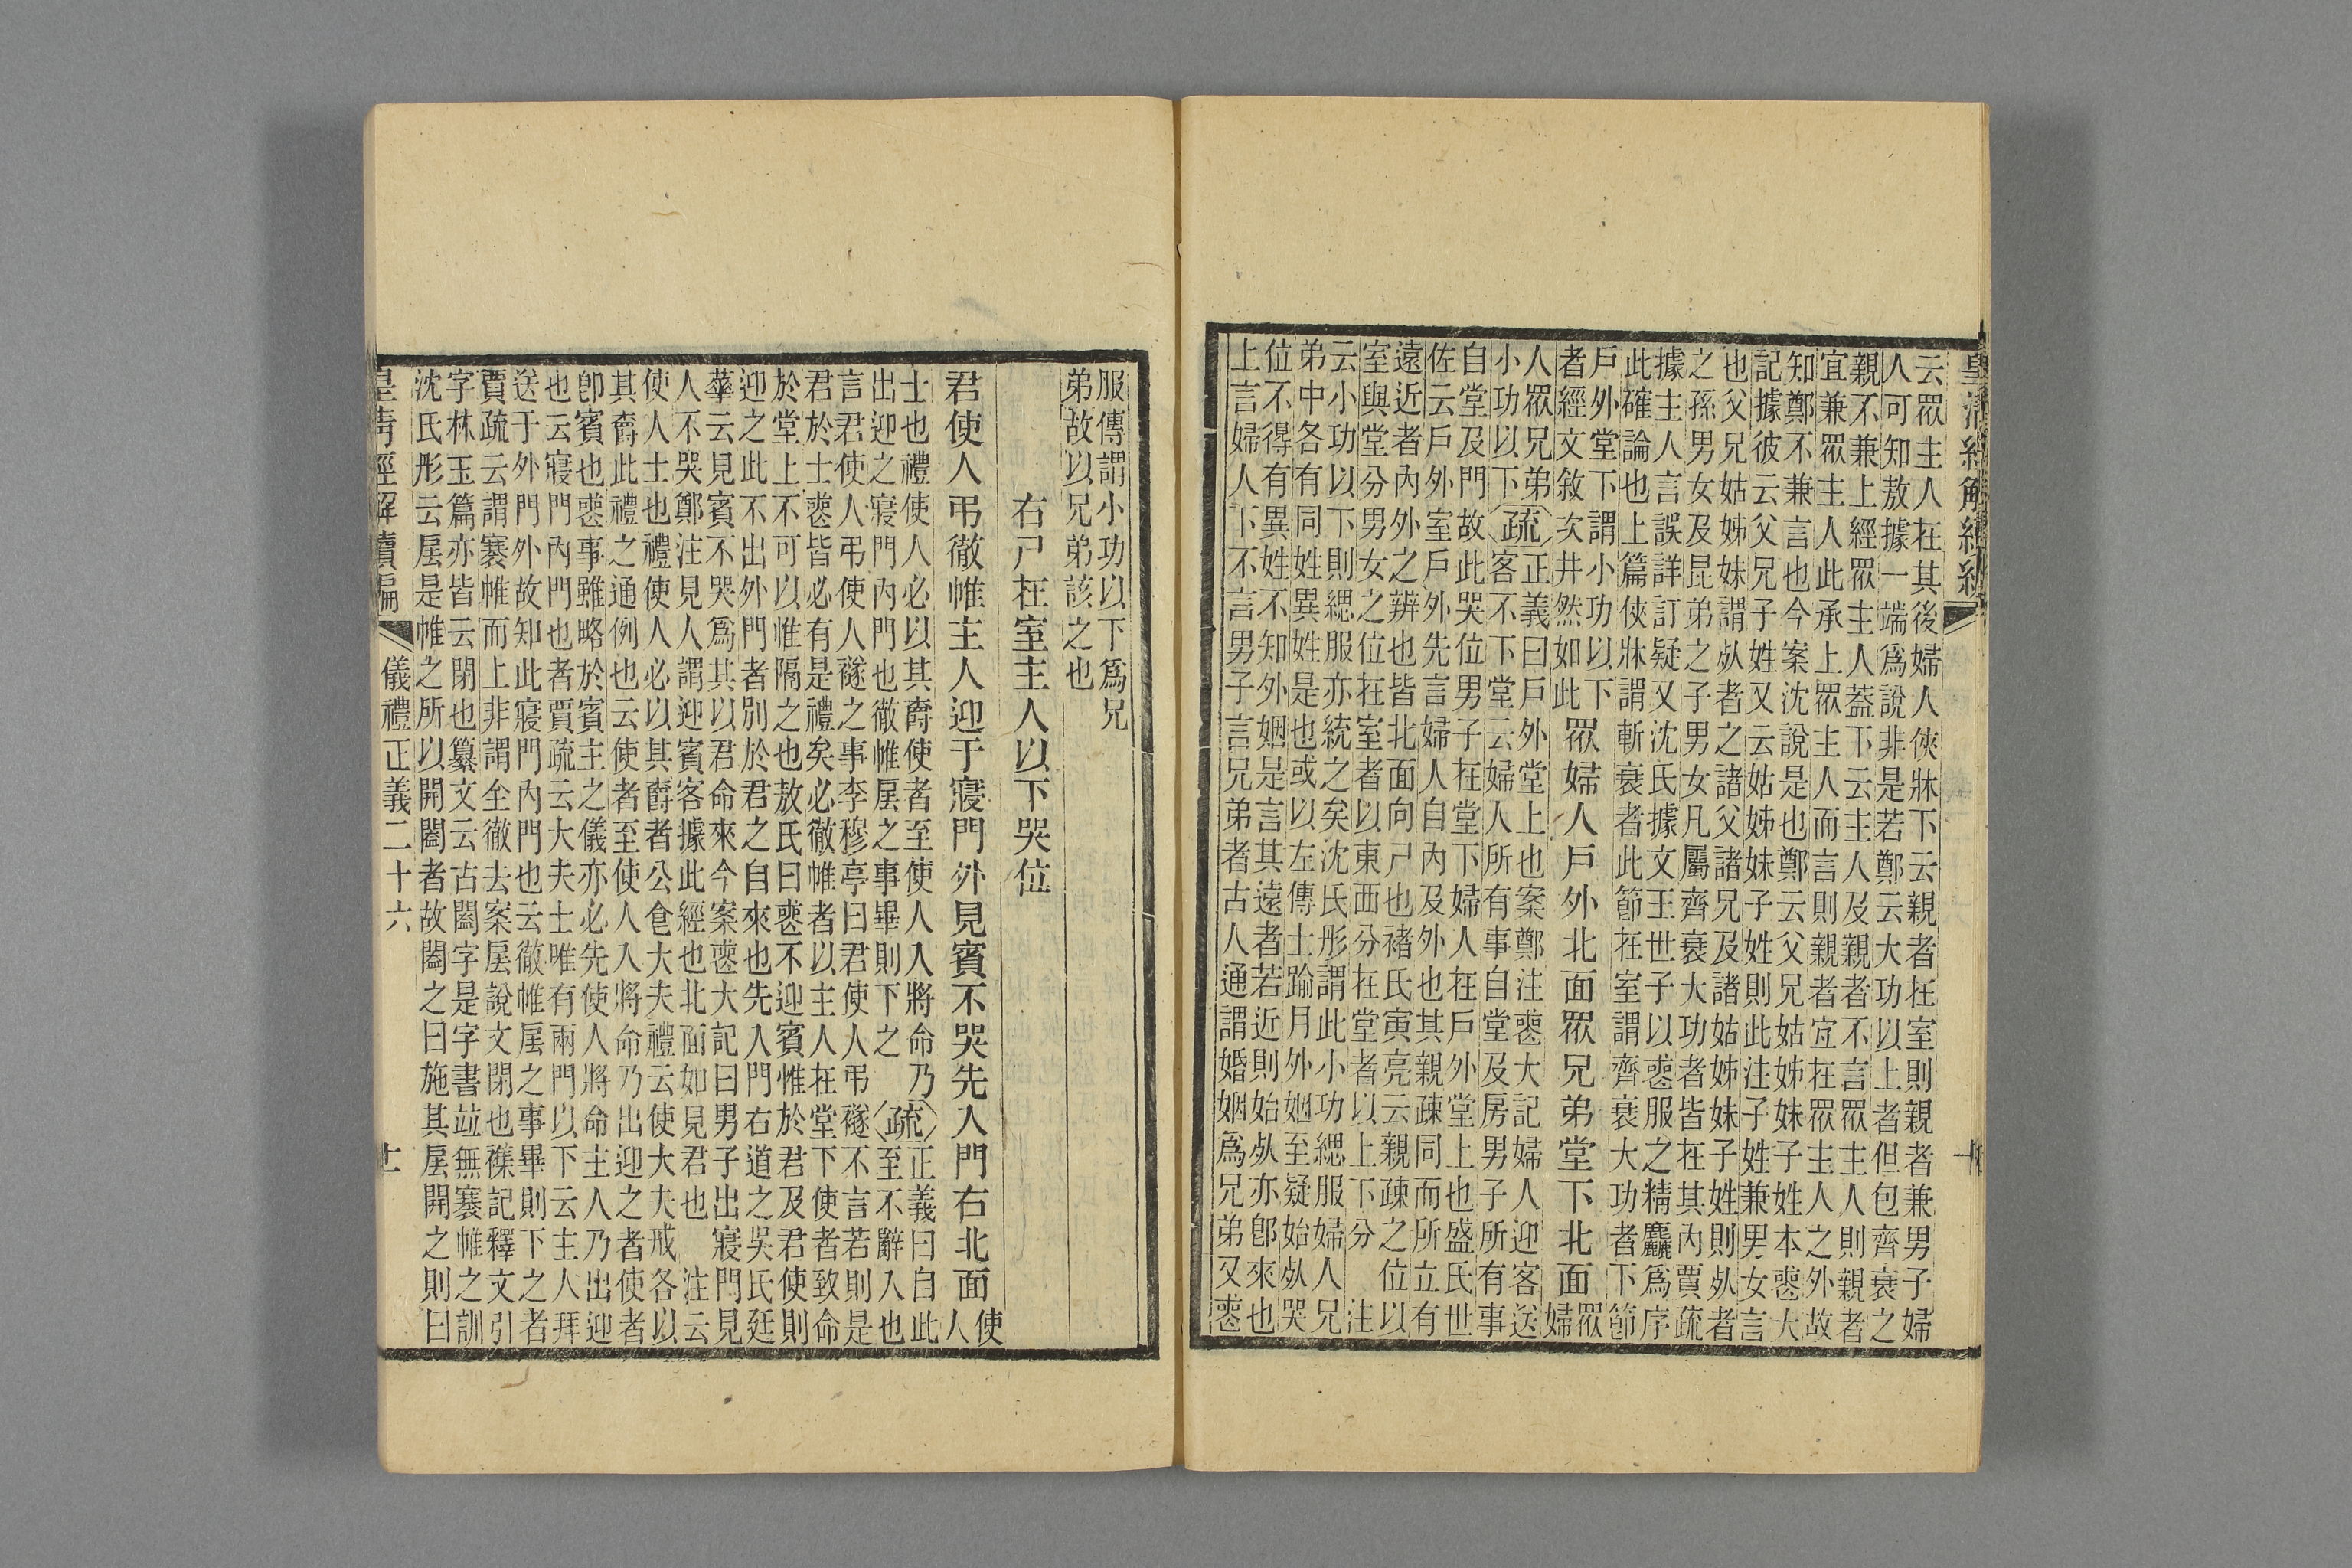 皇清經解續編
云眾主人在其後婦人俠牀下云親者在室則親者兼男子婦
人可知敖據一端爲說非是若鄭云大功以上者但包齊衰之
親不兼上經眾主人蓋下云主人及親者不言眾主人則親者
宜兼眾主人此承上眾主人而言則親者宜在眾主人之外故
知鄭不兼言也今案沈說是也鄭云父兄姑姊妹子姓本喪大
記據彼云父兄子姓又云姑姊妹子姓則此注子姓兼男女言
也父兄姑姊妹謂死者之諸父諸兄及諸姑姊妹子姓則死者
之孫男女及昆弟之子男女凡屬齊衰大功者皆在其內賈疏
據主人言誤詳訂疑又沈氏據文王世子以喪服之精麤爲序
此確論也上篇俠牀謂斬衰者此節在室謂齊衰大功者下節
戶外堂下謂小功以下
者經文敘次井然如此
眾婦人戶外北面眾兄弟堂下北面
眾婦
人眾兄弟
小功以下
疏
正義曰戶外堂上也案鄭注喪大記婦人迎客送
客不下堂云婦人所有事自堂及房男子所有事
自堂及門故此哭位男子在堂下婦人在戶外堂上也盛氏世
佐云戶外室戶外先言婦人自內及外也其親疎同而所立有
遠近者內外之辨也皆北面向尸也褚氏寅亮云親疎之位以
室與堂分男女之位在室者以東西分在堂者以上下分 注
云小功以下則緦服亦統之矣沈氏彤謂此小功緦服婦人兄
弟中各有同姓異姓是也或以左傳士踰月外姻至疑始死哭
位不得有異姓不知外姻是言其遠者若近則始死亦卽來也
上言婦人下不言男子言兄弟者古人通謂婚姻爲兄弟又喪
服傳謂小功以下爲兄
弟故以兄弟該之也
右尸在室主人以下哭位
君使人弔徹帷主人迎于寢門外見賓不哭先入門右北面
使人
士也禮使人必以其爵使者至使人入將命乃
出迎之寢門內門也徹帷㞐之事畢則下之
疏
正義曰自此
至不辭入也
言君使人弔使人襚之事李穆亭曰君使人弔襚不言若則是
君於士喪皆必有是禮矣必徹帷者以主人在堂下使者致命
於堂上不可以帷隔之也敖氏曰喪不迎賓惟於君及君使則
迎之此不出外門者別於君之自來也先入門右道之吳氏廷
華云見賓不哭爲其以君命來今案喪大記曰男子出寢門見
人不哭鄭注見人謂迎賓客據此經也北面如見君也 注云
使人士也禮使人必以其爵者公食大夫禮云使大夫戒各以
其爵此禮之通例也云使者至使人入將命乃出迎之者使者
卽賓也喪事雖略於賓主之儀亦必先使人將命主人乃出迎
也云寢門內門也者賈疏云大夫士唯有兩門以下云主人拜
送于外門外故知此寢門內門也云徹帷㞐之事畢則下之者
賈疏云謂褰帷而上非謂全徹去案㞐說文閉也襍記釋文引
字林玉篇亦皆云閉也纂文云古闔字是字書竝無褰帷之訓
沈氏彤云㞐是帷之所以開闔者故闔之曰施其㞐開之則曰
皇清經解續編 儀禮正義二十六